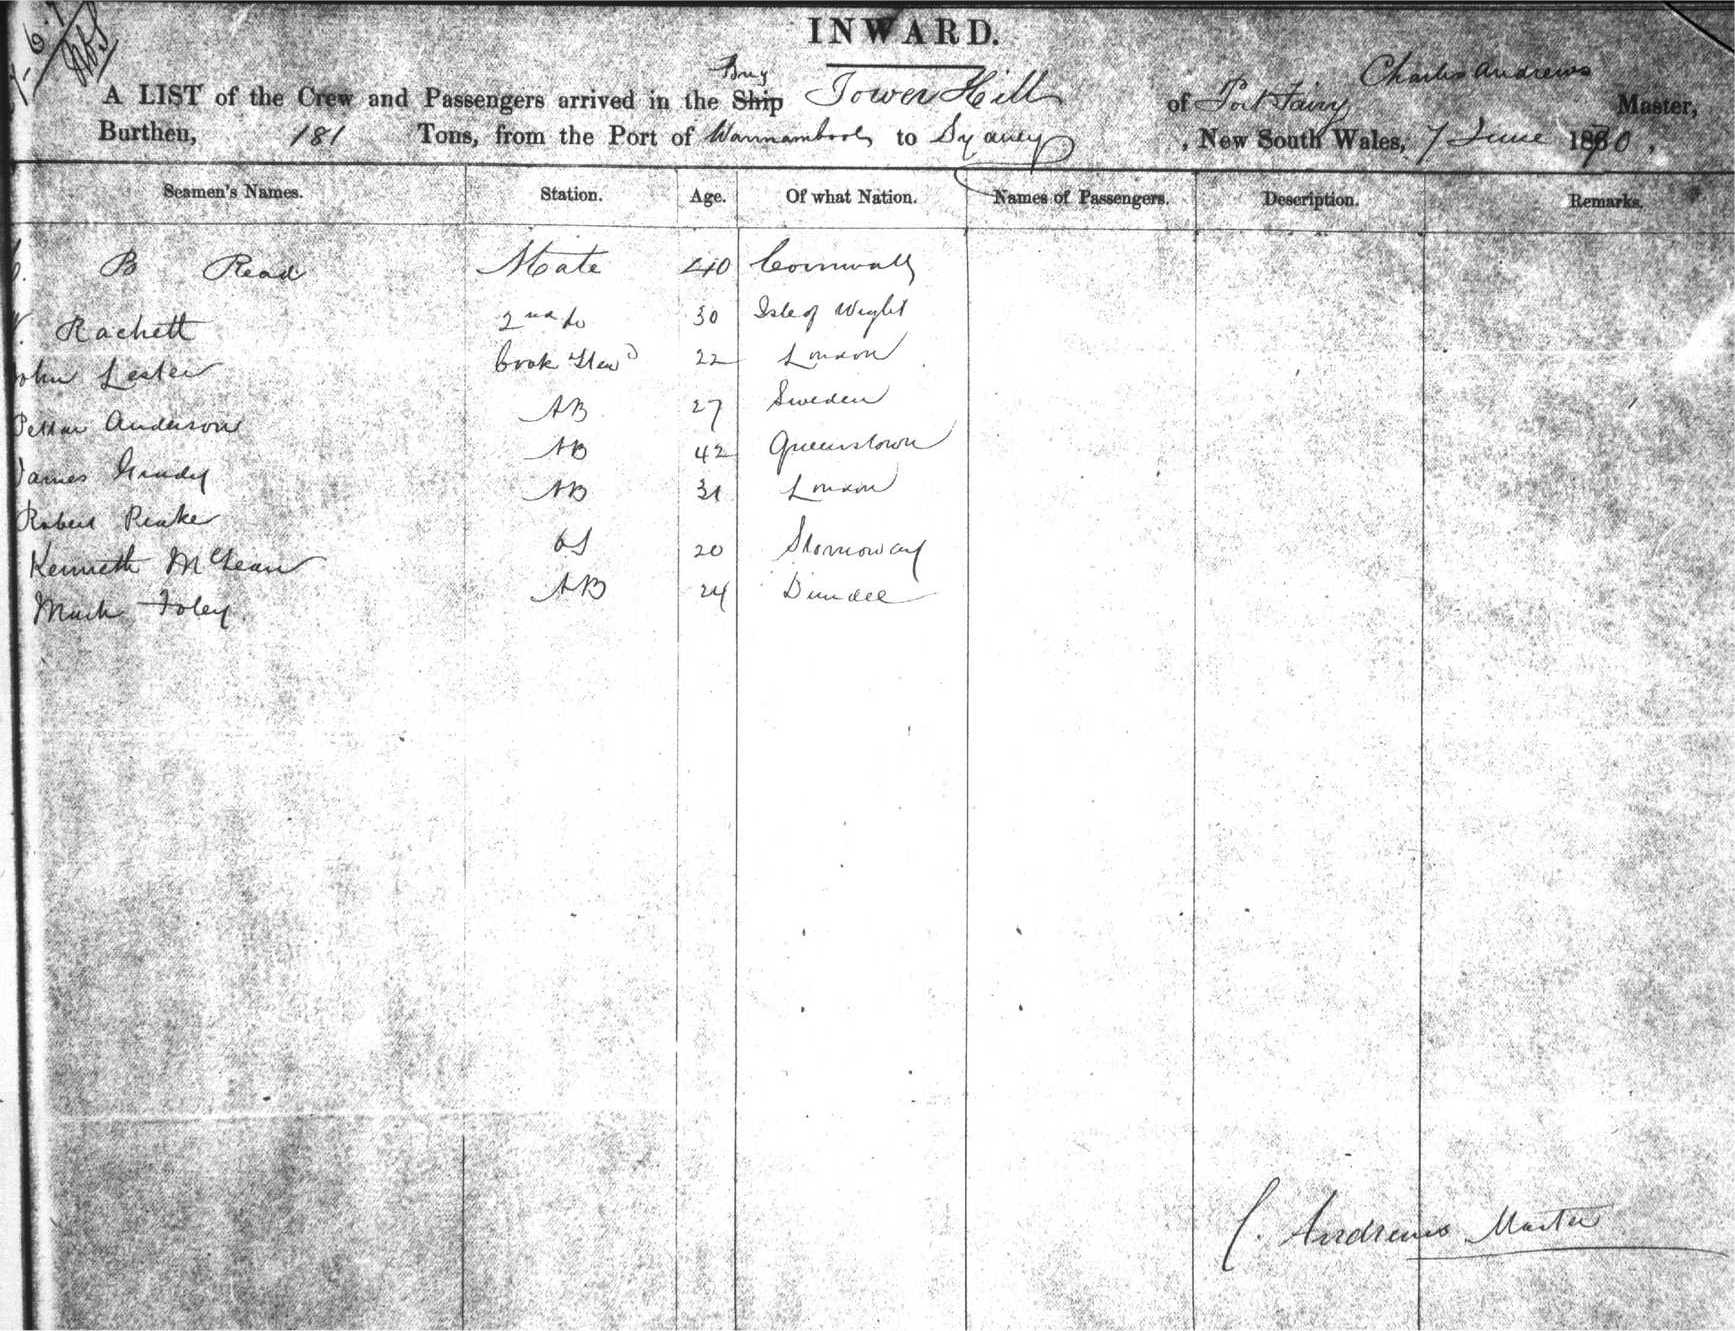 INWARD.
Brig
Charles Andrews
A LIST of the Crew and Passengers arrived in the Ship Tower Hill of Port Fairy Master,
Burthen, 181 Tons, from the Port of Warrnambool to Sydney, New South Wales, 7 June 1870.
Seamen's Names. Station. Age. Of what Nation. Names of Passengers. Description. Remarks.
B Read Mate 40 Cornwall
Rachett 2nd do 30 Isle of Wight
John Lester Cook Stewd 22 London
Petter Anderson AB 27 Sweden
James Grady AB 42 Queenstown
Robert Peake AB 31 London
Kenneth McLean OS 20 Stornoway
Mark Foley AB 24 Dundee
C. Andrews Master